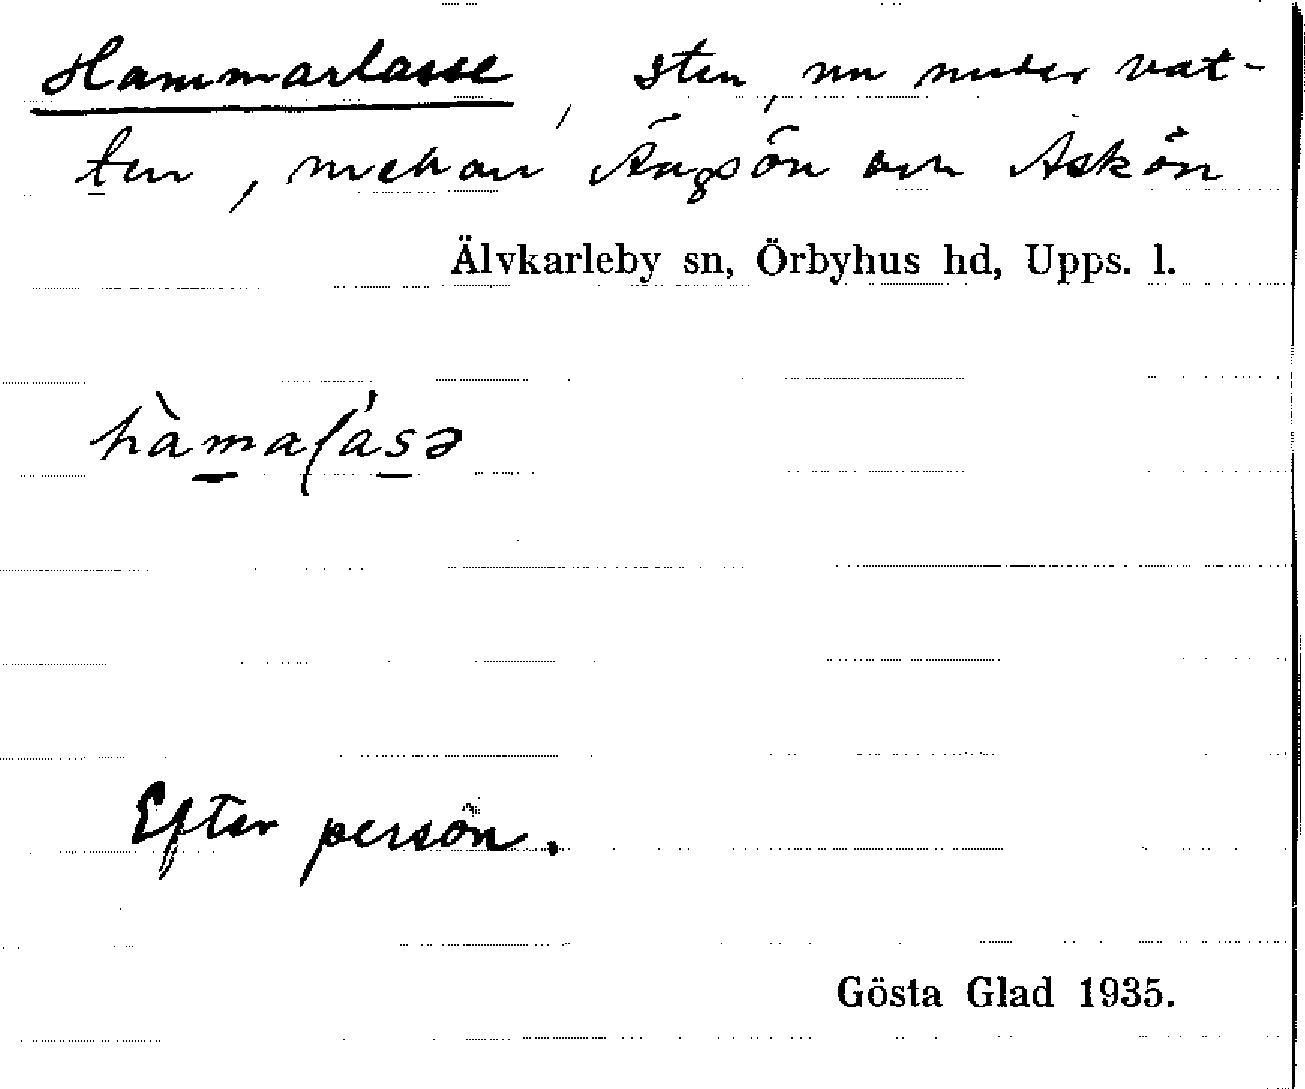 Hammarlasse, sten, nu under vat-
ten, mellan Ängsön och Askön
Älvkarleby sn, Örbyhus hd, Upps. l.
hàmalásə
Efter person.
Gösta Glad 1935.